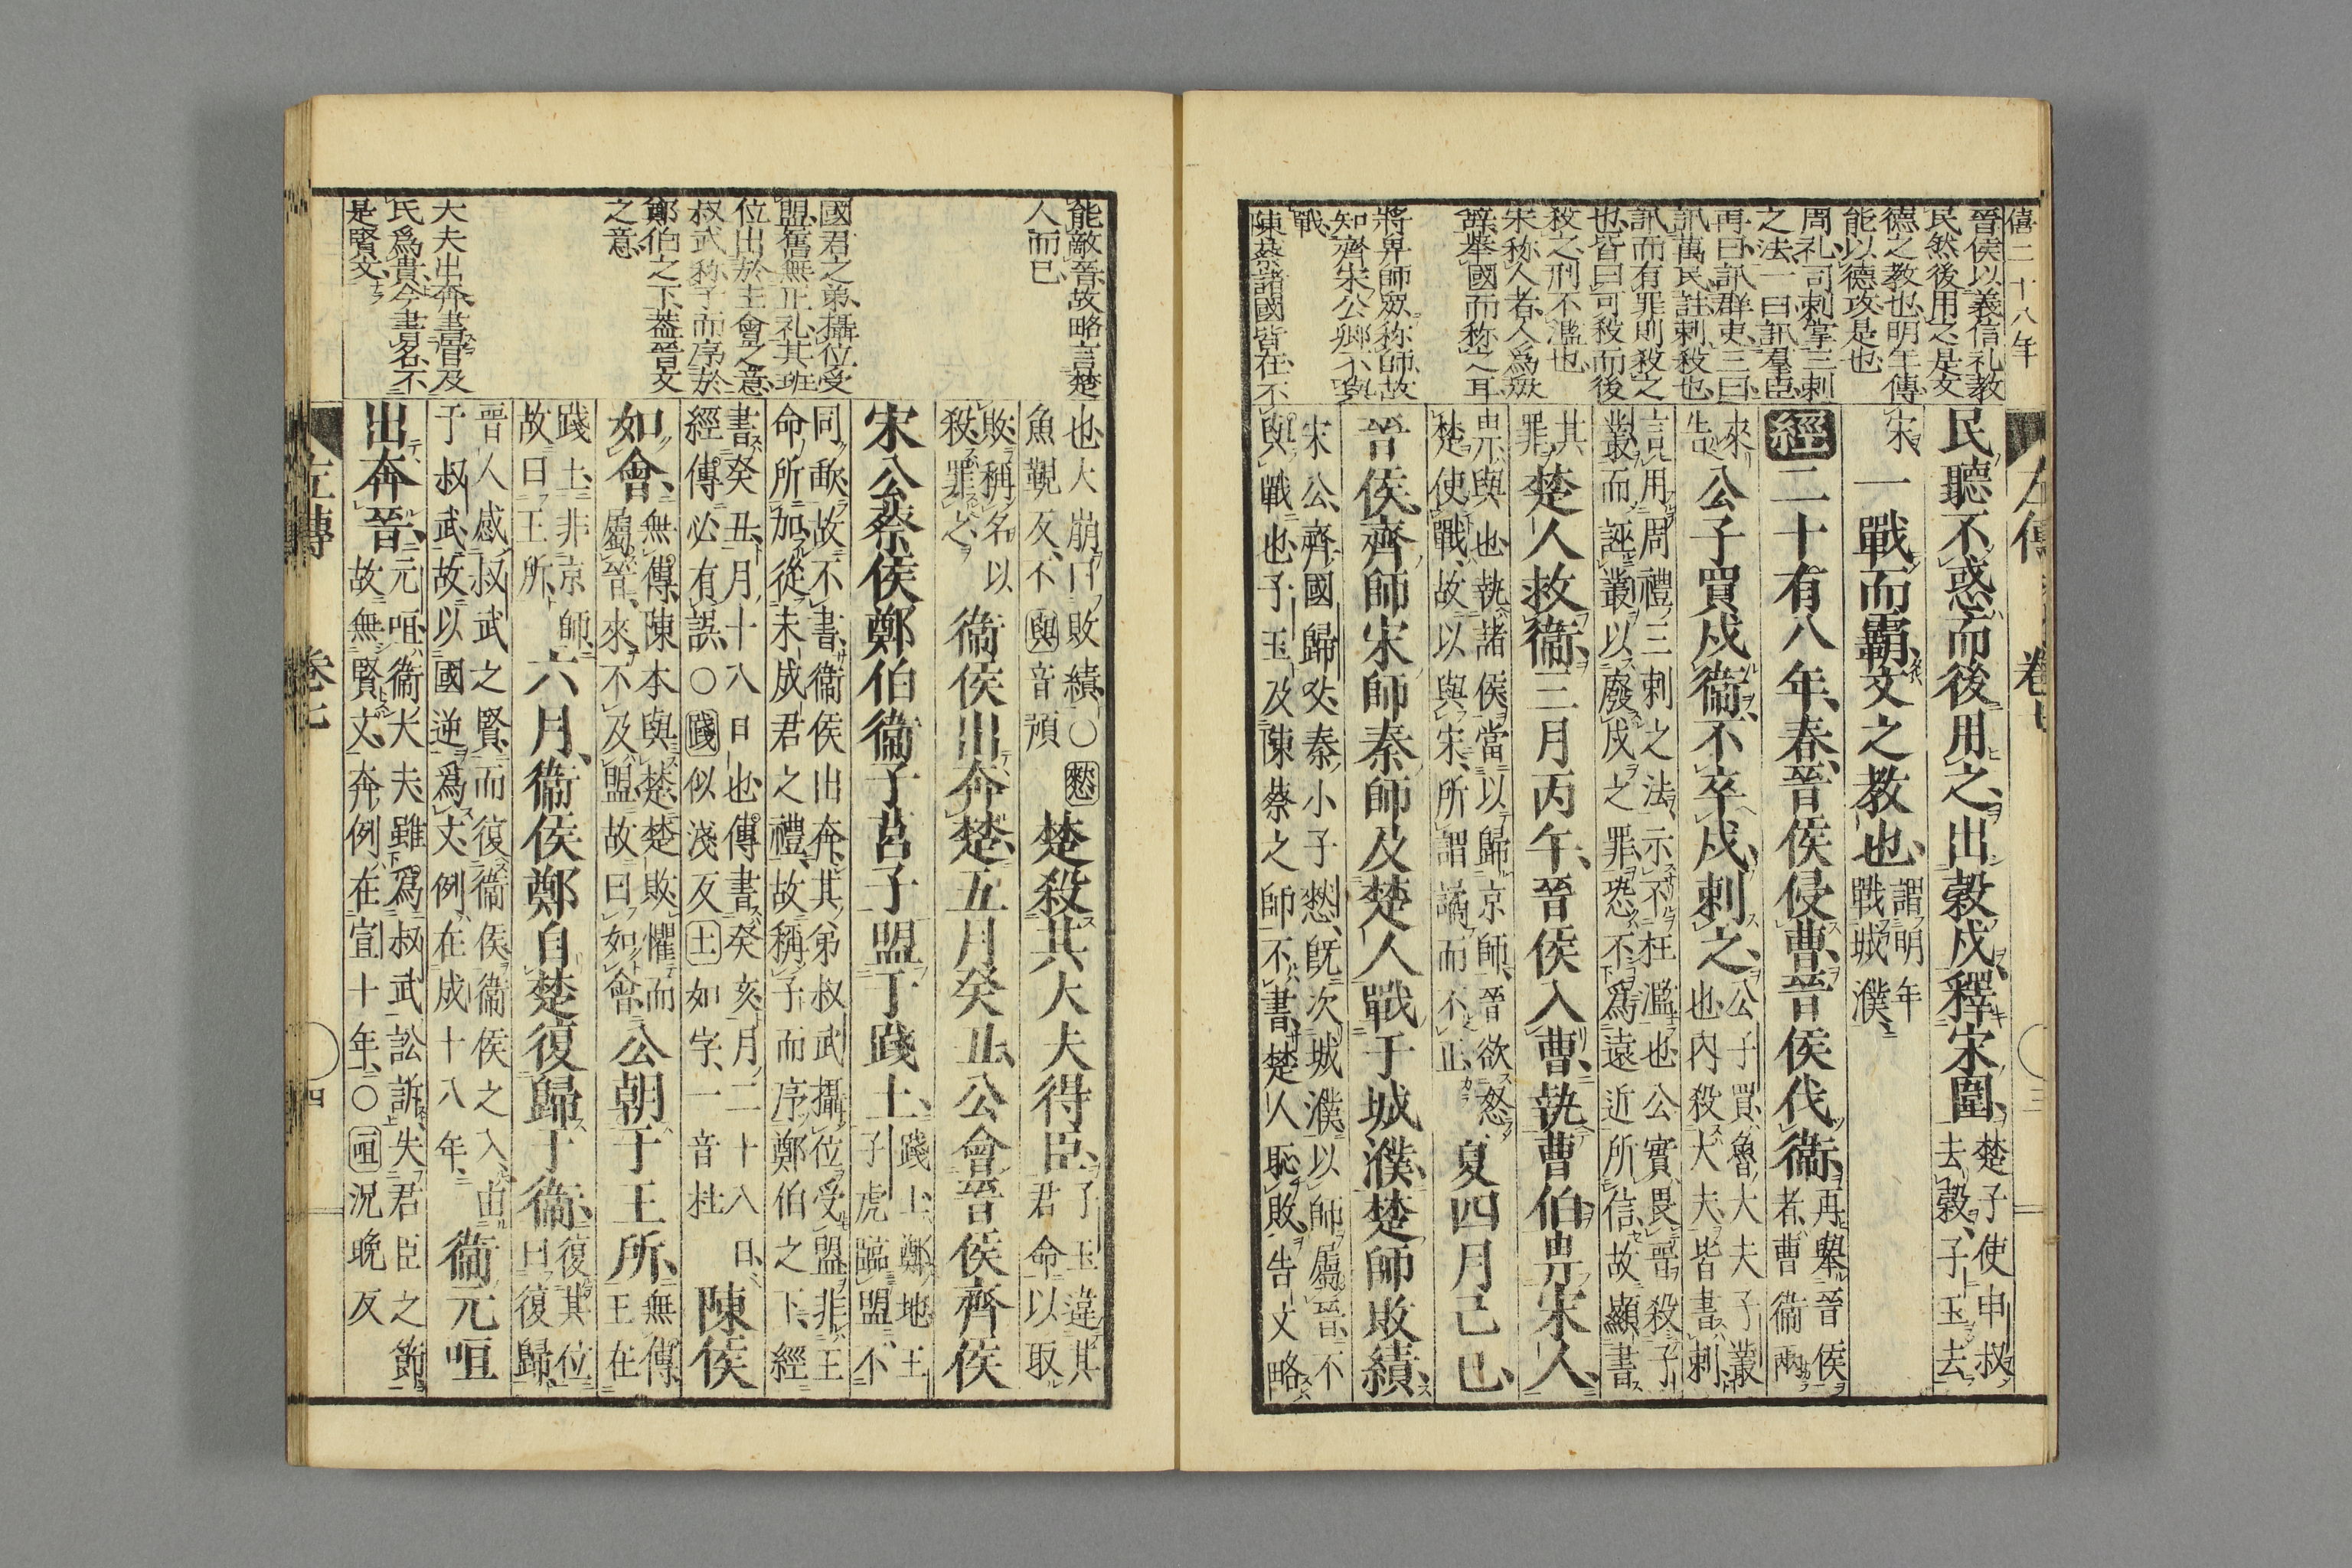 僖二十八年
晉侯以義信礼教
民然後用之是文
德之教也明年傳
能以德攻是也
周礼司刺掌三刺
之法一曰訊羣臣
再曰訊群吏三曰
訊萬民註刺殺也
訊而有罪則殺之
也皆曰可殺而後
殺之刑不濫也
宋称人者人爲衆
辞举國而称之耳
將昇師衆称師故
知齊宋公卿不與
戰
陳蔡諸國皆在不
左傳 卷七 三
民聽不惑而後用之出穀戍釋宋圍楚子使申叔
去穀子玉去
宋一戰而霸文之教也謂明年
戰城濮
經二十有八年春晉侯侵曹晉侯伐衞再舉晉侯
者曹衞兩
來
告公子買戍衞不卒戍刺之公子買魯大夫子叢
也内殺大夫皆書刺
言用周禮三刺之法示不枉濫也公實畏晉殺子
叢而誣叢以廢戍之罪恐不爲遠近所信故顯書
其
罪楚人救衞三月丙午晉侯入曹執曹伯畀宋人
畀與也執諸侯當以歸京師晉欲怒
楚使戰故以與宋所謂譎而不正夏四月己巳
晉侯齊師宋師秦師及楚人戰于城濮楚師敗績
宋公齊國歸父秦小子憖既次城濮以師屬晉不
與戰也子玉及陳蔡之師不書楚人恥敗告文略
能敵晉故略言楚
人而已
國君之弟攝位受
盟舊無正礼其班
位出於主會之意
叔武称子而序於
鄭伯之下蓋晉文
之意
大夫出奔書官及
氏爲貴今書名不
是賢文
也大崩曰敗績○憖
魚覲反不與音預楚殺其大夫得臣子玉違其
君命以取
敗稱名以
殺罪之衞侯出奔楚五月癸丑公會晉侯齊侯
宋公蔡侯鄭伯衞子莒子盟于踐土踐土鄭地王
子虎臨盟不
同歃故不書衞侯出奔其弟叔武攝位受盟非王
命所加從未成君之禮故稱子而序鄭伯之下經
書癸丑月十八日也傳書癸亥月二十八日
經傳必有誤○踐似淺反土如字一音杜陳侯
如會無傳陳本與楚楚敗懼而
屬晉來不及盟故曰如會公朝于王所無傳
王在
踐土非京師
故曰王所六月衞侯鄭自楚復歸于衞復其位
曰復歸
晉人感叔武之賢而復衞侯衞侯之入由
于叔武故以國逆爲文例在成十八年衞元咺
出奔晉元咺衞大夫雖爲叔武訟訴失君臣之節
故無賢文奔例在宣十年○咺況晚反
左傳 卷七 四